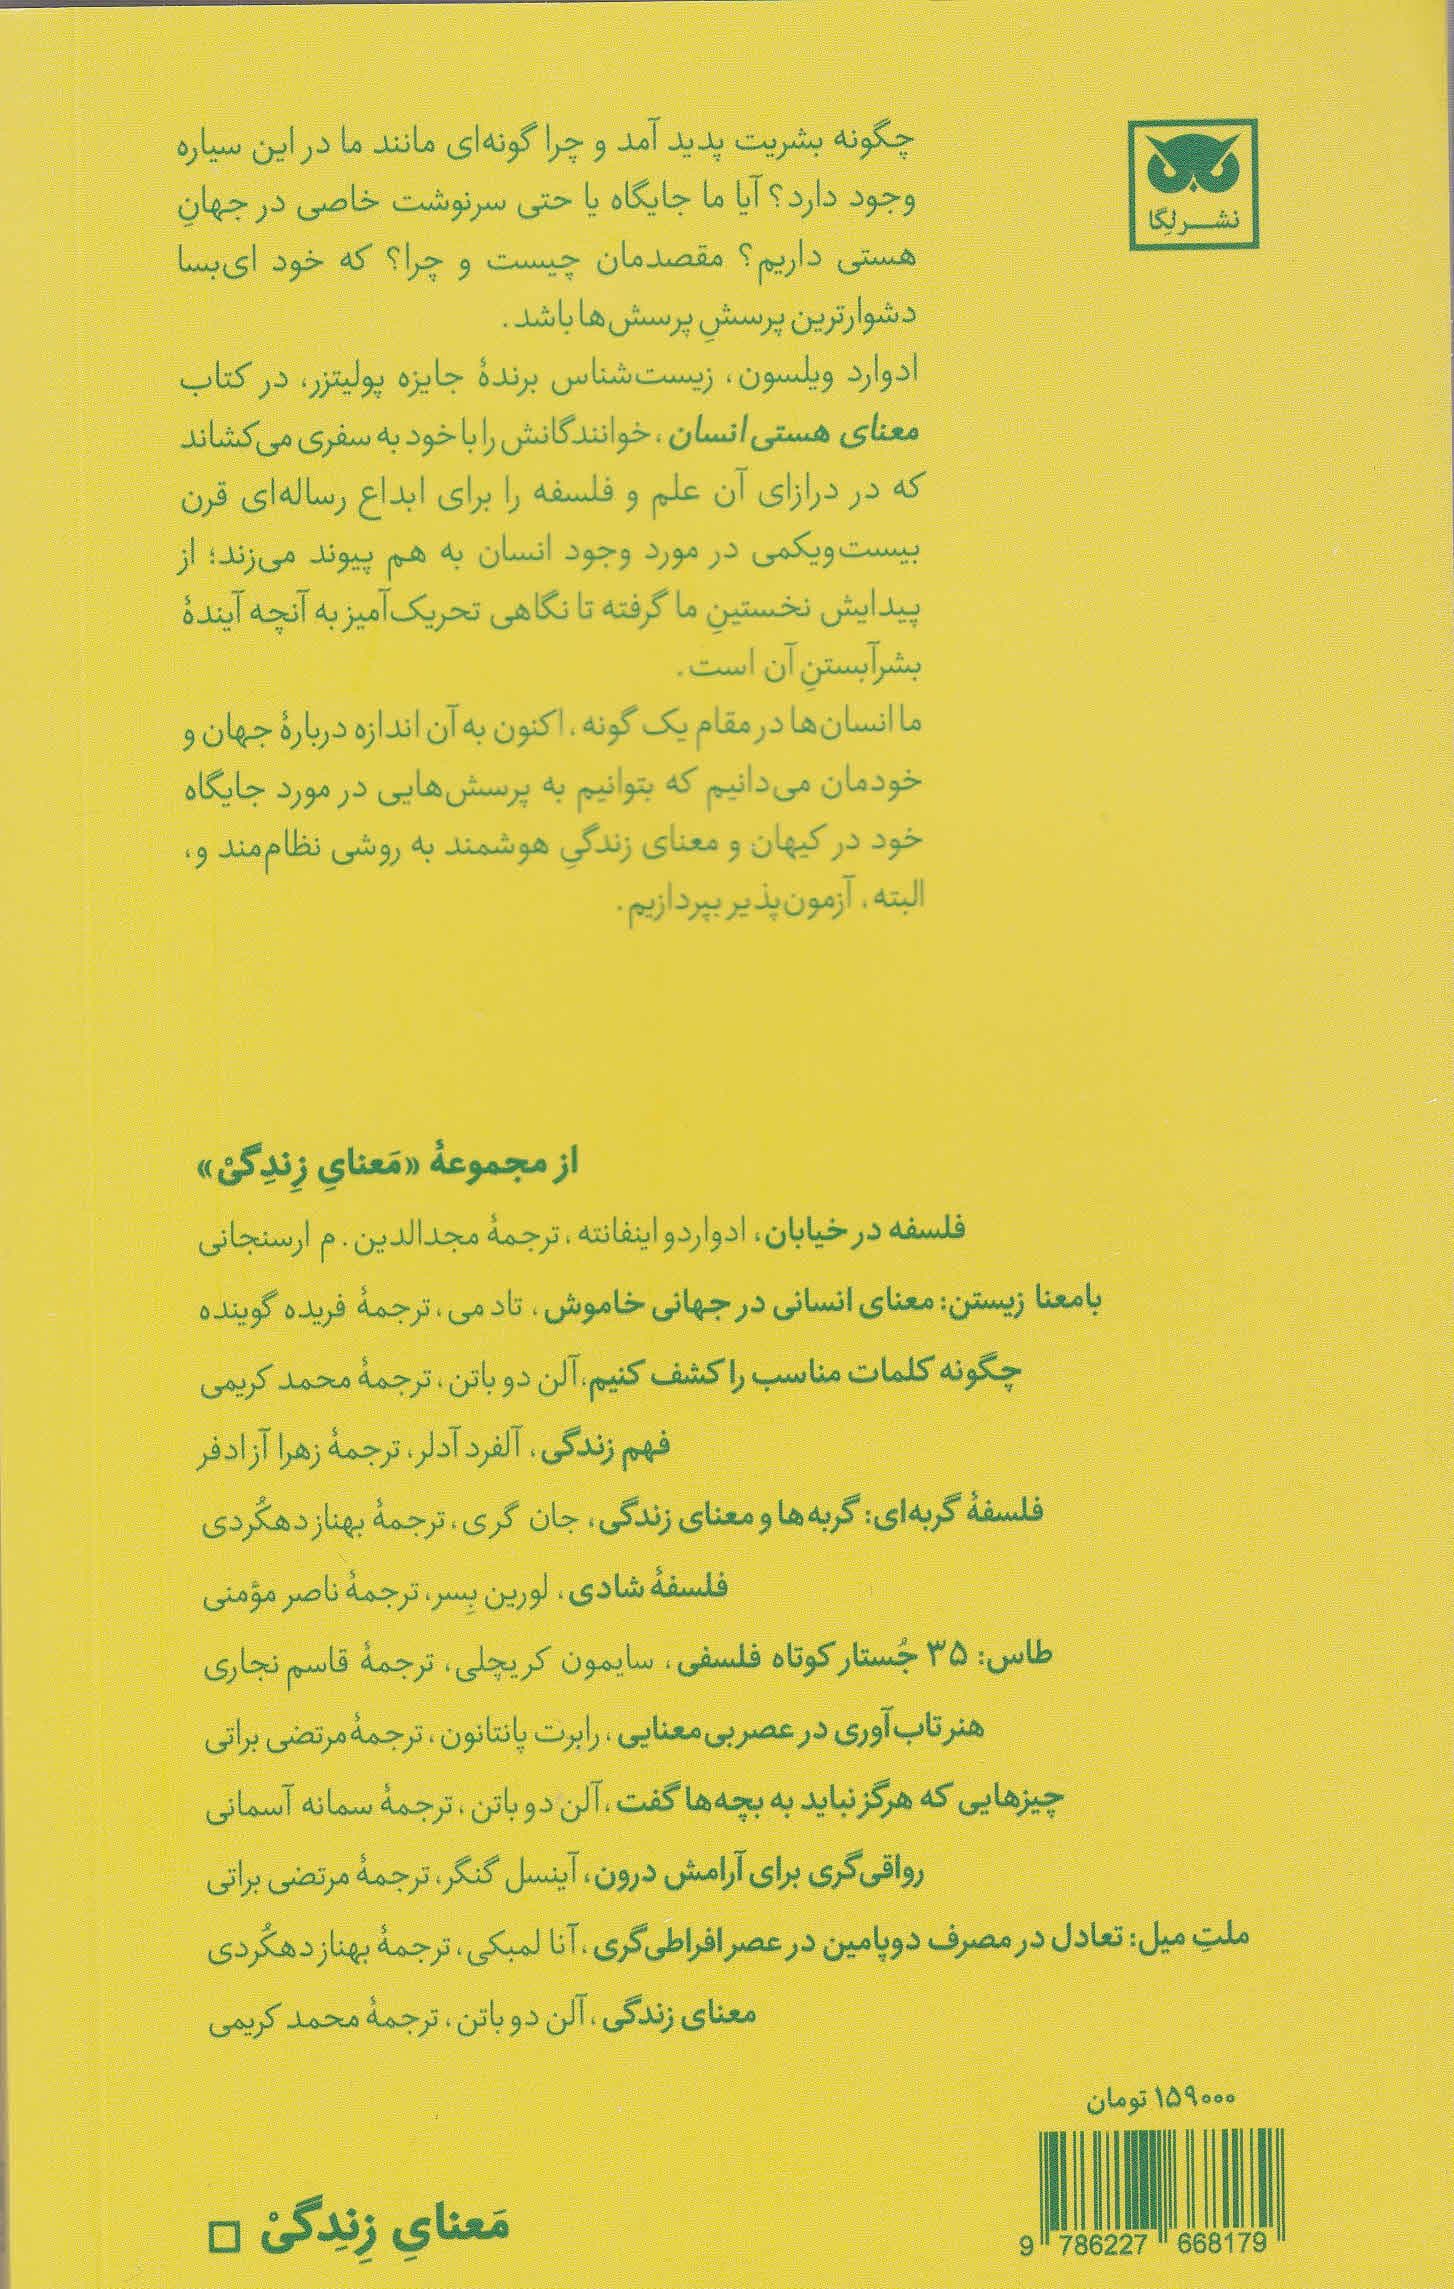 نشر لِگا
چگونه بشریت پدید آمد و چرا گونه‌ای مانند ما در این سیاره
وجود دارد؟ آیا ما جایگاه یا حتی سرنوشت خاصی در جهانِ
هستی داریم؟ مقصدمان چیست و چرا؟ که خود ای‌بسا
دشوارترین پرسشِ پرسش‌ها باشد.
ادوارد ویلسون، زیست‌شناس برندهٔ جایزه پولیتزر، در کتاب
معنای هستی انسان، خوانندگانش را با خود به سفری می‌کشاند
که در درازای آن علم و فلسفه را برای ابداع رساله‌ای قرن
بیست‌ویکمی در مورد وجود انسان به هم پیوند می‌زند؛ از
پیدایش نخستینِ ما گرفته تا نگاهی تحریک‌آمیز به آنچه آیندهٔ
بشر آبستنِ آن است.
ما انسان‌ها در مقام یک گونه، اکنون به آن اندازه دربارهٔ جهان و
خودمان می‌دانیم که بتوانیم به پرسش‌هایی در مورد جایگاه
خود در کیهان و معنای زندگیِ هوشمند به روشی نظام‌مند و،
البته، آزمون‌پذیر بپردازیم.
از مجموعهٔ «مَعنایِ زِندِگیْ»
فلسفه در خیابان، ادواردو اینفانته، ترجمهٔ مجدالدین. م ارسنجانی
بامعنا زیستن: معنای انسانی در جهانی خاموش، تاد می، ترجمهٔ فریده گوینده
چگونه کلمات مناسب را کشف کنیم، آلن دو باتن، ترجمهٔ محمد کریمی
فهم زندگی، آلفرد آدلر، ترجمهٔ زهرا آزادفر
فلسفهٔ گربه‌ای: گربه‌ها و معنای زندگی، جان گری، ترجمهٔ بهناز دهکُردی
فلسفهٔ شادی، لورین بِسر، ترجمهٔ ناصر مؤمنی
طاس: ۳۵ جُستار کوتاه فلسفی، سایمون کریچلی، ترجمهٔ قاسم نجاری
هنر تاب‌آوری در عصر بی‌معنایی، رابرت پانتانون، ترجمهٔ مرتضی براتی
چیزهایی که هرگز نباید به بچه‌ها گفت، آلن دو باتن، ترجمهٔ سمانه آسمانی
رواقی‌گری برای آرامش درون، آینسل گنگر، ترجمهٔ مرتضی براتی
ملتِ میل: تعادل در مصرف دوپامین در عصر افراطی‌گری، آنا لمبکی، ترجمهٔ بهناز دهکُردی
معنای زندگی، آلن دو باتن، ترجمهٔ محمد کریمی
۱۵۹۰۰۰ تومان
9 786227 668179
مَعنایِ زِندِگیْ